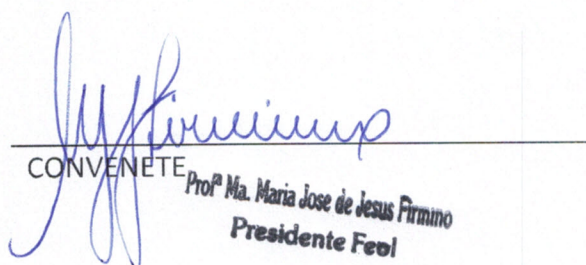 MJJFirmino
CONVENETE
Profª Ma. Maria Jose de Jesus Firmino
Presidente Feol